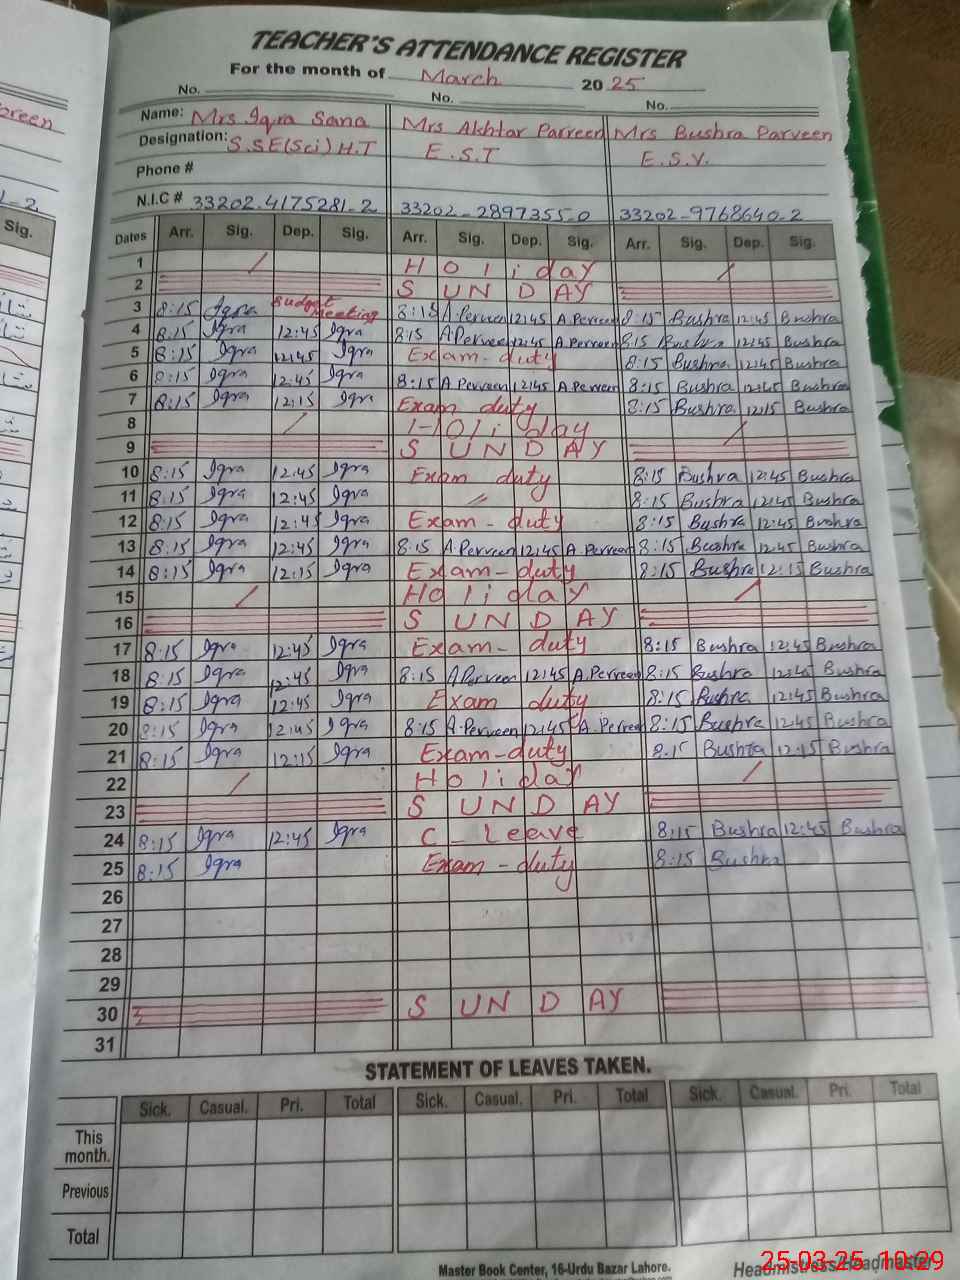 TEACHER'S ATTENDANCE REGISTER
For the month of March 2025
No. No. No.
Name: Mrs Iqra Sana Mrs Akhtar Parveen Mrs Bushra Parveen
Designation: S.SE(Sci) H.T E.S.T E.S.V.
Phone #
N.I.C # 33202-4175281-2 33202-2897355-0 33202-9768640-2
Dates Arr. Sig. Dep. Sig. Arr. Sig. Dep. Sig. Arr. Sig. Dep. Sig.
1 / Holiday /
2 SUNDAY
3 8:15 Iqra Budget Meeting 8:15 A.Perveen 12:45 A.Perveen 8:15 Bushra 12:45 Bushra
4 8:15 Iqra 12:45 Iqra 8:15 A.Perveen 12:45 A.Perveen 8:15 Bushra 12:45 Bushra
5 8:15 Iqra 12:45 Iqra Exam-duty 8:15 Bushra 12:45 Bushra
6 8:15 Iqra 12:45 Iqra 8:15 A.Perveen 12:45 A.Perveen 8:15 Bushra 12:45 Bushra
7 8:15 Iqra 12:15 Iqra Exam duty 8:15 Bushra 12:15 Bushra
8 / Holiday /
9 SUNDAY
10 8:15 Iqra 12:45 Iqra Exam duty 8:15 Bushra 12:45 Bushra
11 8:15 Iqra 12:45 Iqra 〃 8:15 Bushra 12:45 Bushra
12 8:15 Iqra 12:45 Iqra Exam-duty 8:15 Bushra 12:45 Bushra
13 8:15 Iqra 12:45 Iqra 8:15 A.Perveen 12:45 A.Perveen 8:15 Bushra 12:45 Bushra
14 8:15 Iqra 12:15 Iqra Exam-duty 8:15 Bushra 12:15 Bushra
15 / Holiday /
16 SUNDAY
17 8:15 Iqra 12:45 Iqra Exam-duty 8:15 Bushra 12:45 Bushra
18 8:15 Iqra 12:45 Iqra 8:15 A.Perveen 12:45 A.Perveen 8:15 Bushra 12:45 Bushra
19 8:15 Iqra 12:45 Iqra Exam duty 8:15 Bushra 12:45 Bushra
20 8:15 Iqra 12:45 Iqra 8:15 A.Perveen 12:45 A.Perveen 8:15 Bushra 12:45 Bushra
21 8:15 Iqra 12:15 Iqra Exam-duty 8:15 Bushra 12:15 Bushra
22 / Holiday /
23 SUNDAY
24 8:15 Iqra 12:45 Iqra C-Leave 8:15 Bushra 12:45 Bushra
25 8:15 Iqra Exam-duty 8:15 Bushra
26
27
28
29
30 SUNDAY
31
STATEMENT OF LEAVES TAKEN.
Sick. Casual. Pri. Total Sick. Casual. Pri. Total Sick. Casual. Pri. Total
This month.
Previous
Total
Master Book Center, 16-Urdu Bazar Lahore.
Headmistress/Headmaster
25-03-25 10:29
Sig.